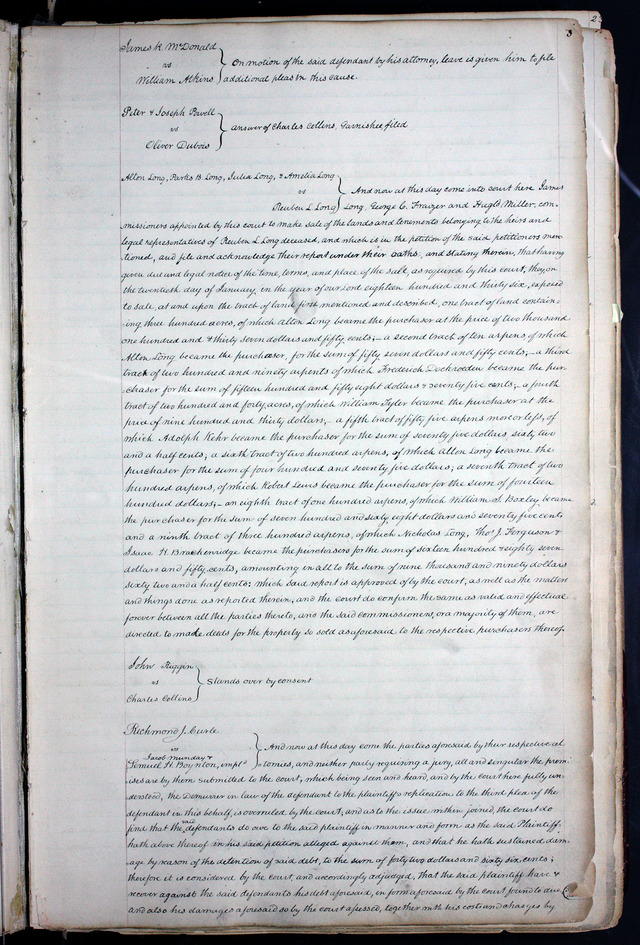 2
3
James H. McDonald
vs
William Atkins
On motion of the said defendant by his attorney, leave is given him to file
additional pleas in this cause.
Peter & Joseph Powell
vs
Oliver Dubois
answer of Charles Collins, Garnishee filed
Alton Long, Parkes B. Long, Julia Long, & Amelia Long
vs
Reuben L. Long
And now at this day come into court here James
Long, George C. Frazer and Hugh Miller, com-
missioners appointed by this court to make sale of the lands and tenements belonging to the heirs and
legal representatives of Reuben L Long deceased, and which is in the petition of the said petitioners men-
tioned, and file and acknowledge their report under their oaths, and stating therein, that having
given due and legal notice of the time, terms, and place of the sale, as required by this court, they on
the twentieth day of January, in the year of our Lord eighteen hundred and thirty six, exposed
to sale, at and upon the tract of land first mentioned and described, one tract of land contain-
ing three hundred acres, of which Alton Long became the purchaser at the price of two thousand
one hundred and & thirty seven dollars and fifty cents;— a second tract of ten arpens of which
Alton Long became the purchaser, for the sum of fifty seven dollars and fifty cents;— a third
tract of two hundred and ninety arpents of which Frederick became the pur-
chaser for the sum of fifteen hundred and fifty eight dollars & seventy five cents;— a fourth
tract of two hundred and forty acres, of which William Tyler became the purchaser at the
price of nine hundred and thirty dollars;— a fifth tract of fifty five arpens more or less, of
which Adolph Kehr became the purchaser for the sum of seventy five dollars, sixty two
and a half cents; a sixth tract of two hundred arpens, of which Alton Long became the
purchaser for the sum of four hundred and seventy five dollars; a seventh tract of two
hundred arpens, of which Robert Lewis became the purchaser for the sum of fourteen
hundred dollars;— an eighth tract of one hundred arpens, of which William S. Boxley became
the purchaser for the sum of seven hundred and sixty eight dollars and seventy five cents
and a ninth tract of three hundred arpens, of which Nicholas Long, Thos J. Ferguson &
Isaac H. Brackenridge became the purchasers for the sum of sixteen hundred & eighty seven
dollars and fifty cents, amounting in all to the sum of nine thousand and ninety dollars
sixty two and a half cents: which said report is approved of by the court, as well as the matters
and things done as reported therein, and the court do confirm the same as valid and effectual
forever between all the parties thereto, and the said commissioners, or a majority of them, are
directed to make deeds for the property so sold as aforesaid to the respective purchasers thereof.
John Riggin
vs
Charles Collins
Stands over by consent
Richmond J. Curle
vs
Jacob Munday &
Lemuel H. Boynton, impld
And now at this day come the parties aforesaid by their respective at
tornies, and neither party requiring a jury, all and singular the prem-
ises are by them submitted to the court, which being seen and heard, and by the court here fully un-
derstood, the Demurrer in law of the defendant to the plaintiffs replication to the third plea of the
defendant in this behalf, is overruled by the court, and as to the issue within joined, the court do
find that the said defendants do owe to the said plaintiff in manner and form as the said Plaintiff
hath above thereof in his said petition alleged against them, and that he hath sustained dam-
age by reason of the detention of said debt, to the sum of forty two dollars and sixty six cents;
therefore it is considered by the court, and accordingly adjudged, that the said plaintiff have &
recover against the said defendants his debt aforesaid, in form aforesaid by the court found to be due
and also his damages aforesaid so by the court assessed, together with his costs and charges by